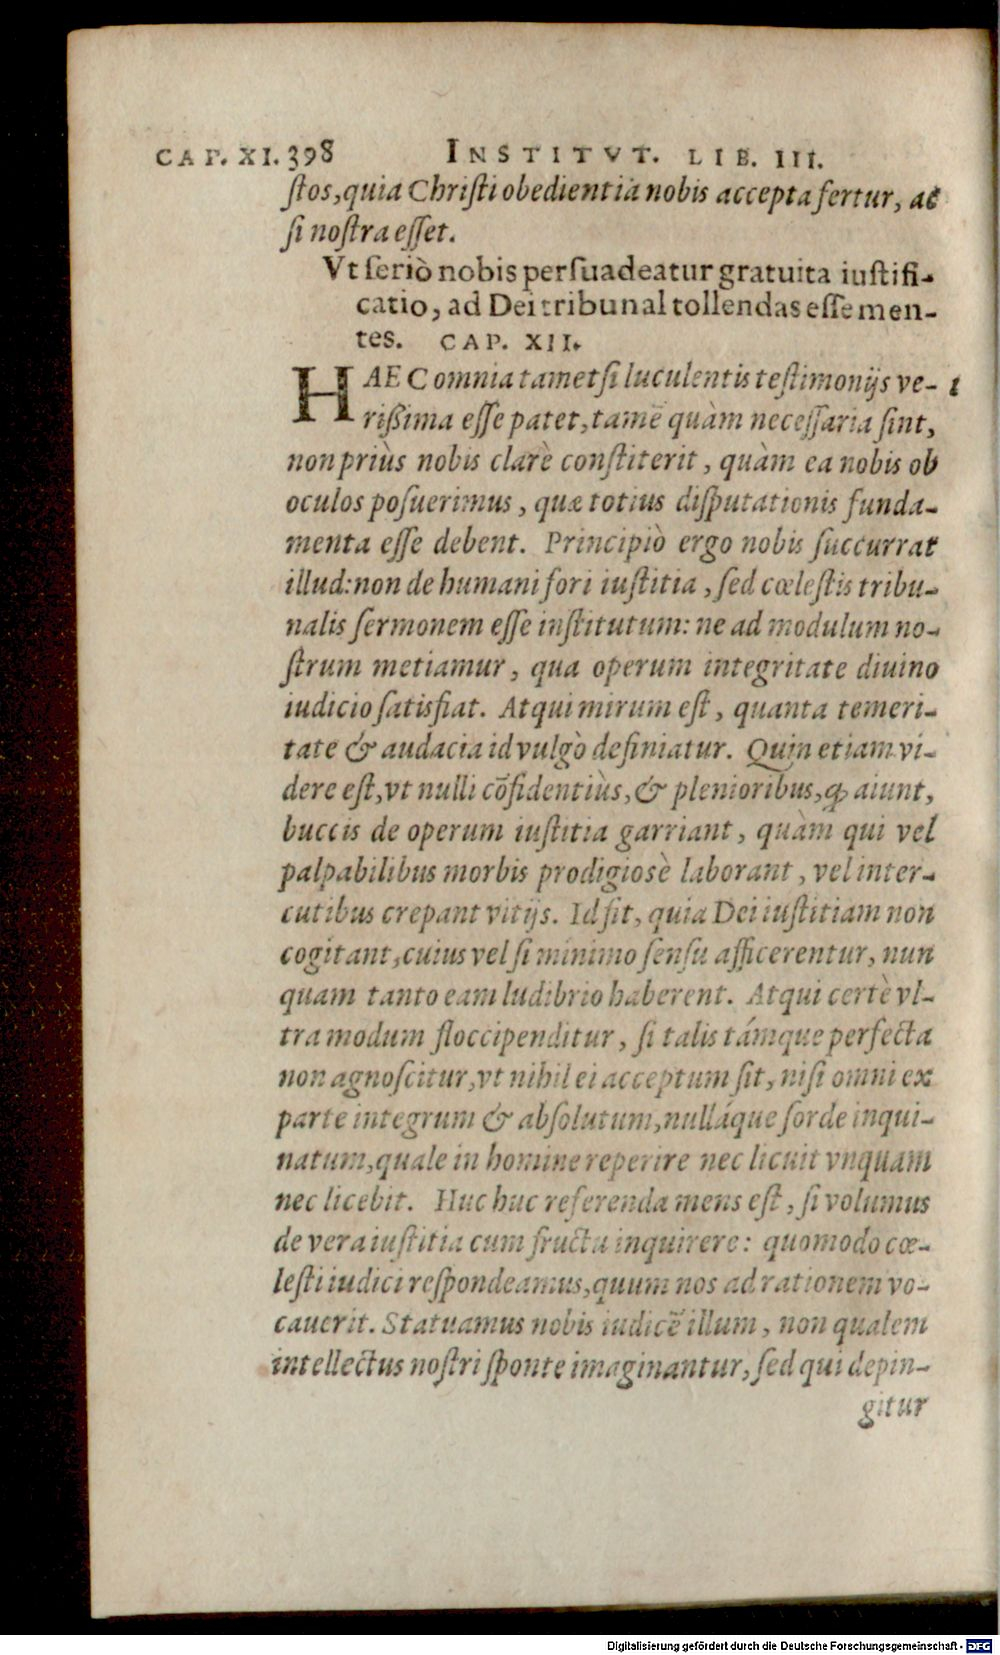 CAP. XI. 398 INSTITVT. LIB. III.
ſtos, quia Chriſti obedientia nobis accepta fertur, ac
ſi noſtra eſſet.
Vt ſeriò nobis perſuadeatur gratuita iuſtifi-
catio, ad Dei tribunal tollendas eſſe men-
tes. CAP. XII.
HAEC omnia tametſi luculentis teſtimonijs ve- 1
rißima eſſe patet, tamẽ quàm neceſſaria ſint,
non priùs nobis clarè conſtiterit, quàm ea nobis ob
oculos poſuerimus, quæ totius diſputationis funda-
menta eſſe debent. Principiò ergo nobis ſuccurrat
illud: non de humani fori iuſtitia, ſed cœleſtis tribu-
nalis ſermonem eſſe inſtitutum: ne ad modulum no-
ſtrum metiamur, qua operum integritate diuino
iudicio ſatisfiat. Atqui mirum eſt, quanta temeri-
tate & audacia id vulgò definiatur. Quin etiam vi-
dere eſt, vt nulli cõfidentiùs, & plenioribus, ꝙ aiunt,
buccis de operum iuſtitia garriant, quàm qui vel
palpabilibus morbis prodigiosè laborant, vel inter-
cutibus crepant vitijs. Id fit, quia Dei iuſtitiam non
cogitant, cuius vel ſi minimo ſenſu afficerentur, nun
quam tanto eam ludibrio haberent. Atqui certè vl-
tra modum floccipenditur, ſi talis támque perfecta
non agnoſcitur, vt nihil ei acceptum ſit, niſi omni ex
parte integrum & abſolutum, nulláque ſorde inqui-
natum, quale in homine reperire nec licuit vnquam
nec licebit. Huc huc referenda mens eſt, ſi volumus
de vera iuſtitia cum fructu inquirere: quomodo cœ-
leſti iudici reſpondeamus, quum nos ad rationem vo-
cauerit. Statuamus nobis iudicẽ illum, non qualem
intellectus noſtri ſponte imaginantur, ſed qui depin-
gitur
Digitalisierung gefördert durch die Deutsche Forschungsgemeinschaft - DFG